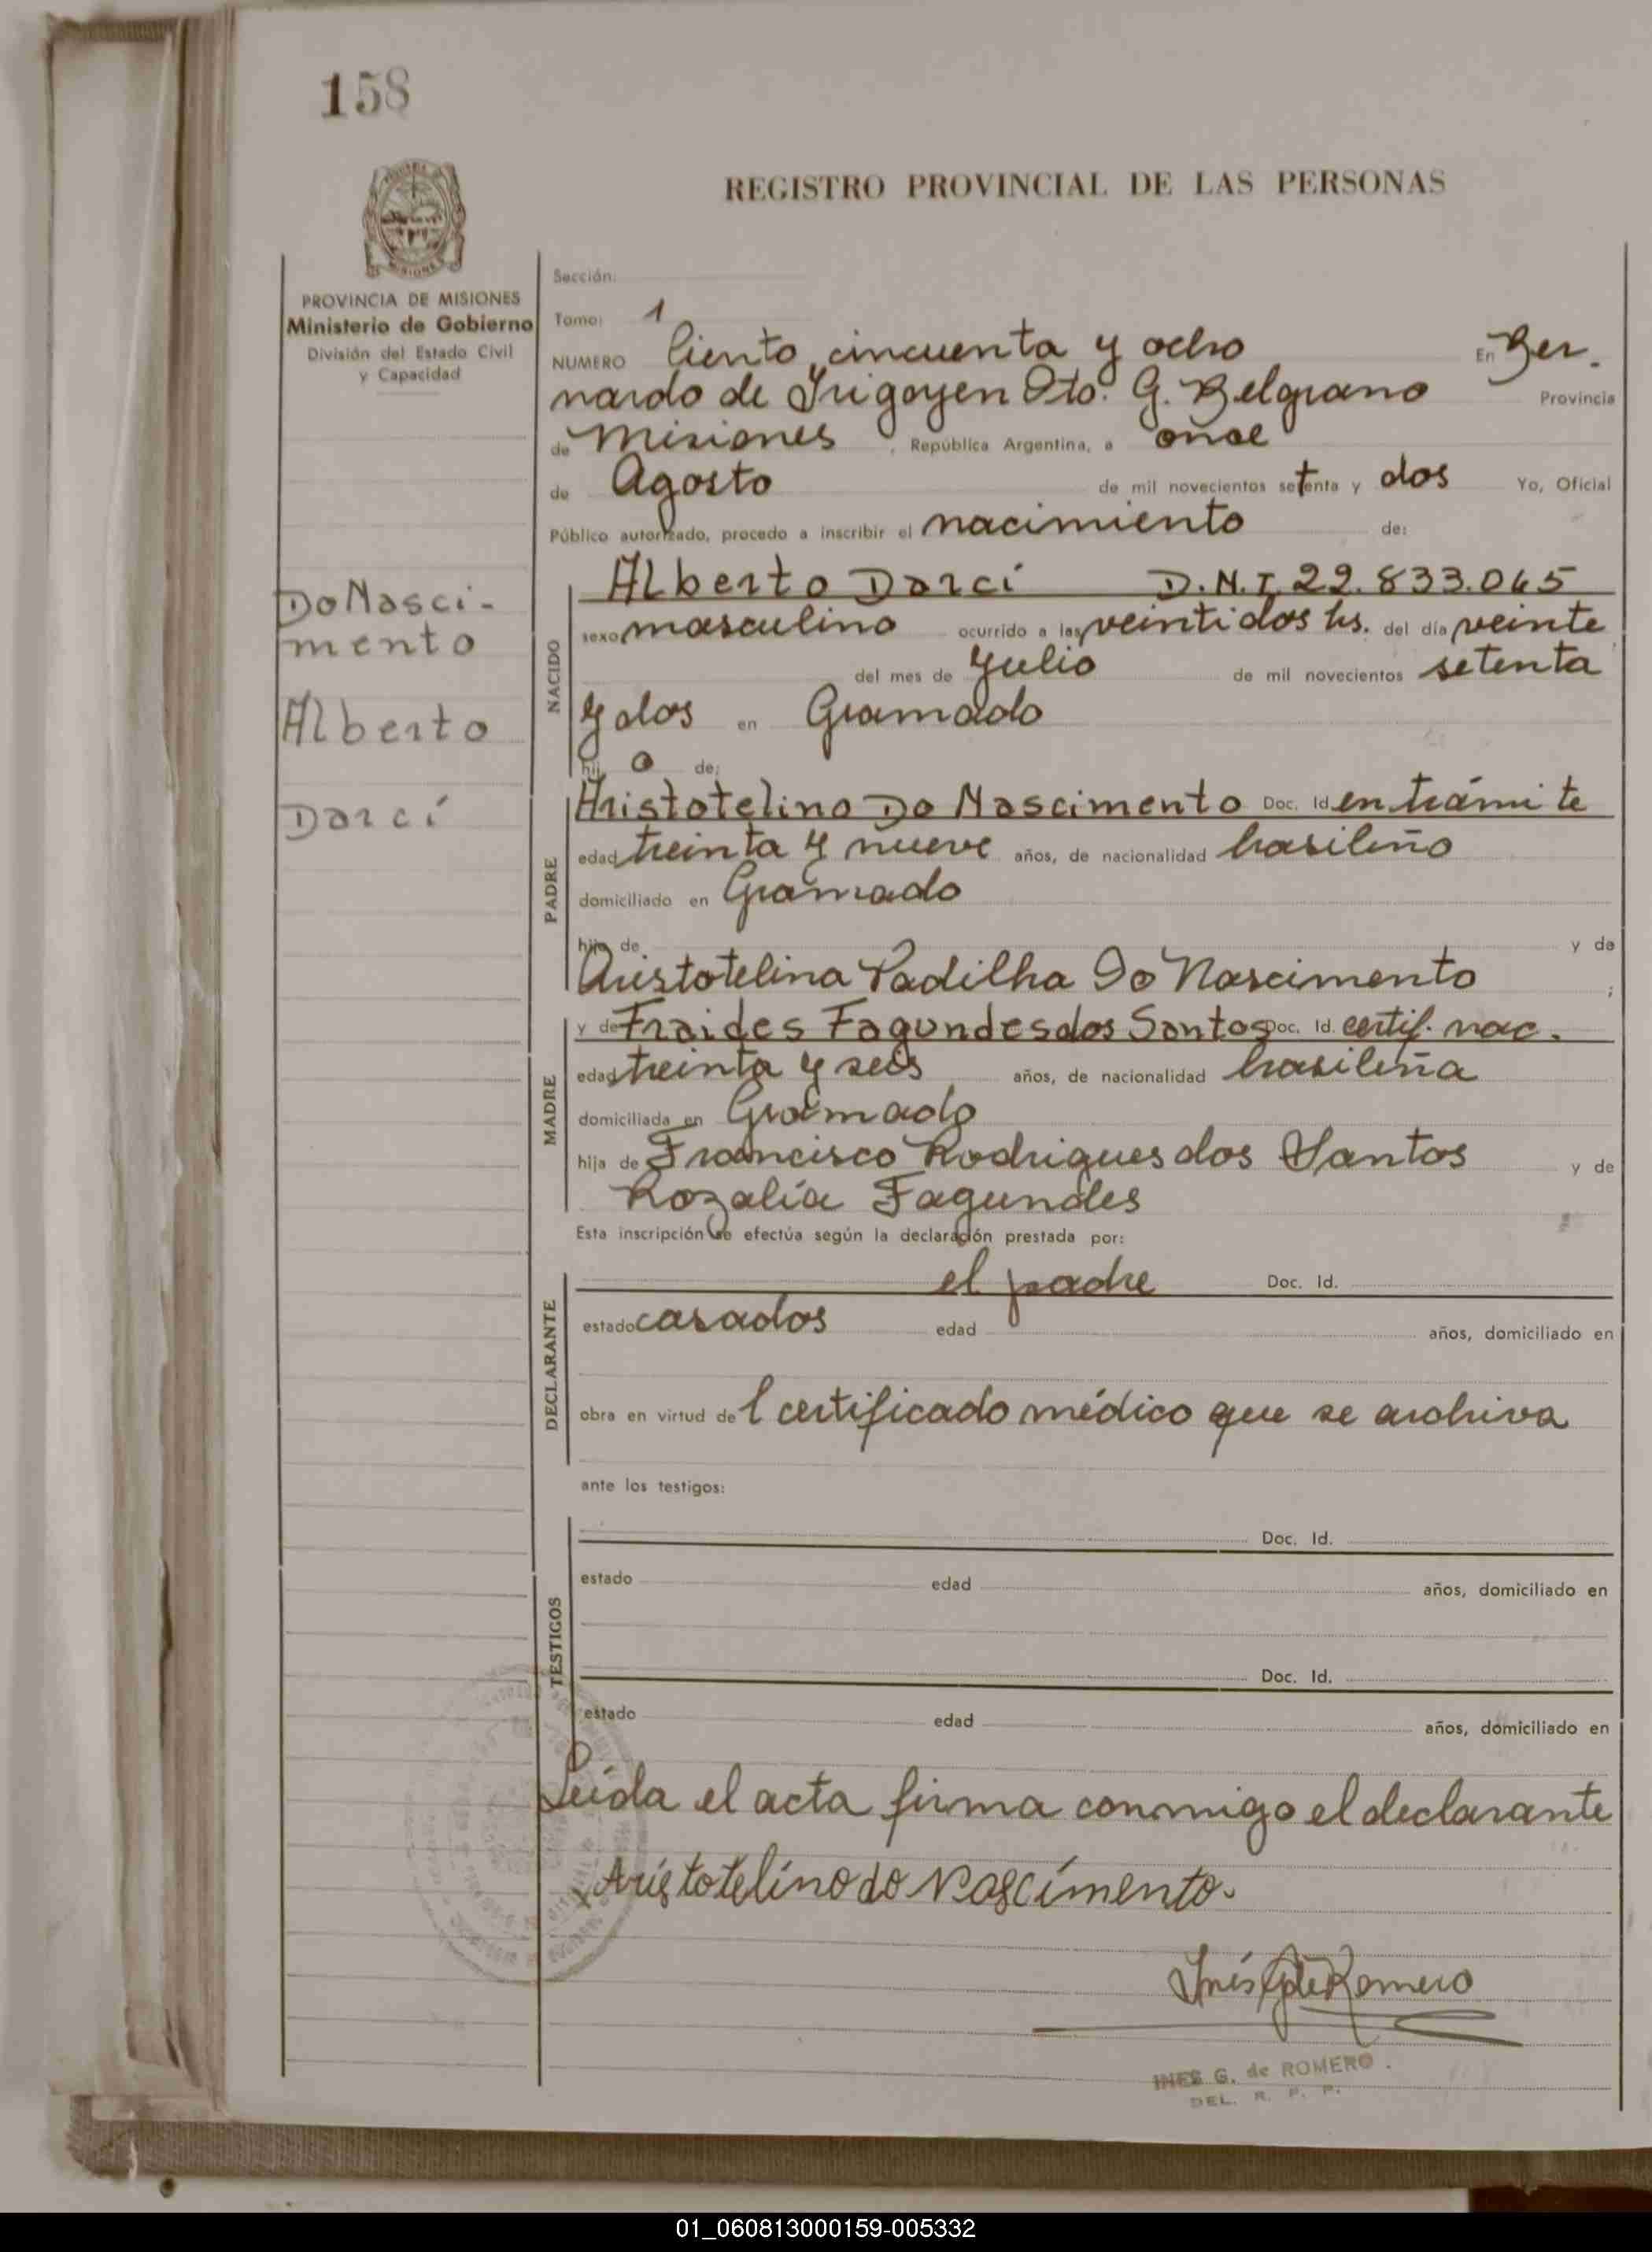 158
REGISTRO PROVINCIAL DE LAS PERSONAS
MISIONES
PROVINCIA DE MISIONES
Ministerio de Gobierno
División del Estado Civil
y Capacidad
Do Nasci-
mento
Alberto
Darcí
Sección:
Tomo: 1
NUMERO Ciento cincuenta y ocho En Ber.
nardo de Irigoyen Dto. G. Belgrano Provincia
de Misiones, República Argentina, a once
de Agosto de mil novecientos setenta y dos Yo, Oficial
Público autorizado, procedo a inscribir el nacimiento de:
NACIDO
Alberto Darcí D.N.I. 22.833.065
sexo masculino ocurrido a las veintidos hs. del día veinte
del mes de Julio de mil novecientos setenta
y dos en Gramado
hij o de:
PADRE
Aristotelino Do Nascimento Doc. Id en trámite
edad treinta y nueve años, de nacionalidad brasileño
domiciliado en Gramado
hijo de y de
Aristotelina Padilha Do Nascimento ;
MADRE
y de Fraides Fagundes dos Santos Doc. Id. certif. nac.
edad treinta y seis años, de nacionalidad brasileña
domiciliada en Gramado
hija de Francisco Rodrigues dos Santos y de
Rozalía Fagundes
Esta inscripción se efectúa según la declaración prestada por:
DECLARANTE
el padre Doc. Id.
estado casados edad años, domiciliado en
obra en virtud de l certificado médico que se archiva
ante los testigos:
TESTIGOS
Doc. Id.
estado edad años, domiciliado en
Doc. Id.
estado edad años, domiciliado en
Leída el acta firma conmigo el declarante
x Aristotelino do Nascímento.
Inés G de Romero
INES G. de ROMERO.
DEL. R. P. P.
01_060813000159-005332